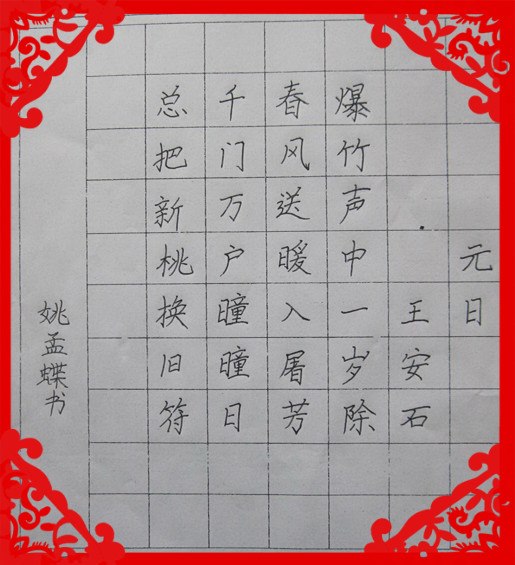 元日
王安石
爆竹声中一岁除
春风送暖入屠芳
千门万户瞳瞳日
总把新桃换旧符
姚孟蝶书